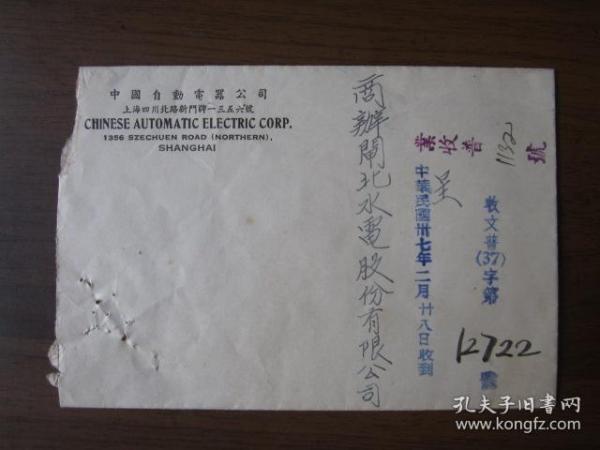 中國自動電器公司
上海四川北路新門牌一三五六號
CHINESE AUTOMATIC ELECTRIC CORP.
1356 SZECHUEN ROAD (NORTHERN),
SHANGHAI
商辦閘北水電股份有限公司
業收普
1132
號
呈
中華民國卅七年二月廿八日收到
收文普(37)字第
12722
號
孔夫子旧书网
www.kongfz.com